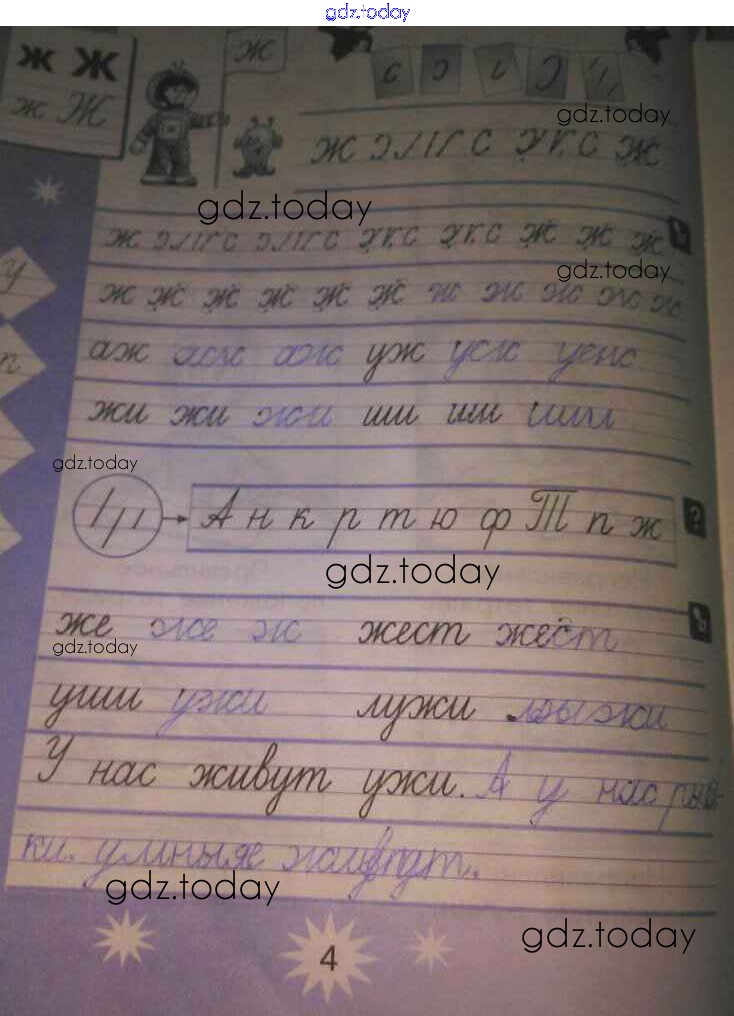 gdz.today
ж Ж ж
ж Ж
gdz.today
ж ж
gdz.today
ж ж ж
gdz.today
ж ж ж ж ж ж ж ж ж ж ж
аж аж аж уж уж уж
жи жи жи ши ши ши
gdz.today
А н к р т ю ф Т п ж ?
gdz.today
же же ж жест жест
gdz.today
уши ужи лужи лыжи
У нас живут ужи. А у нас
умные живут.
gdz.today
gdz.today
4